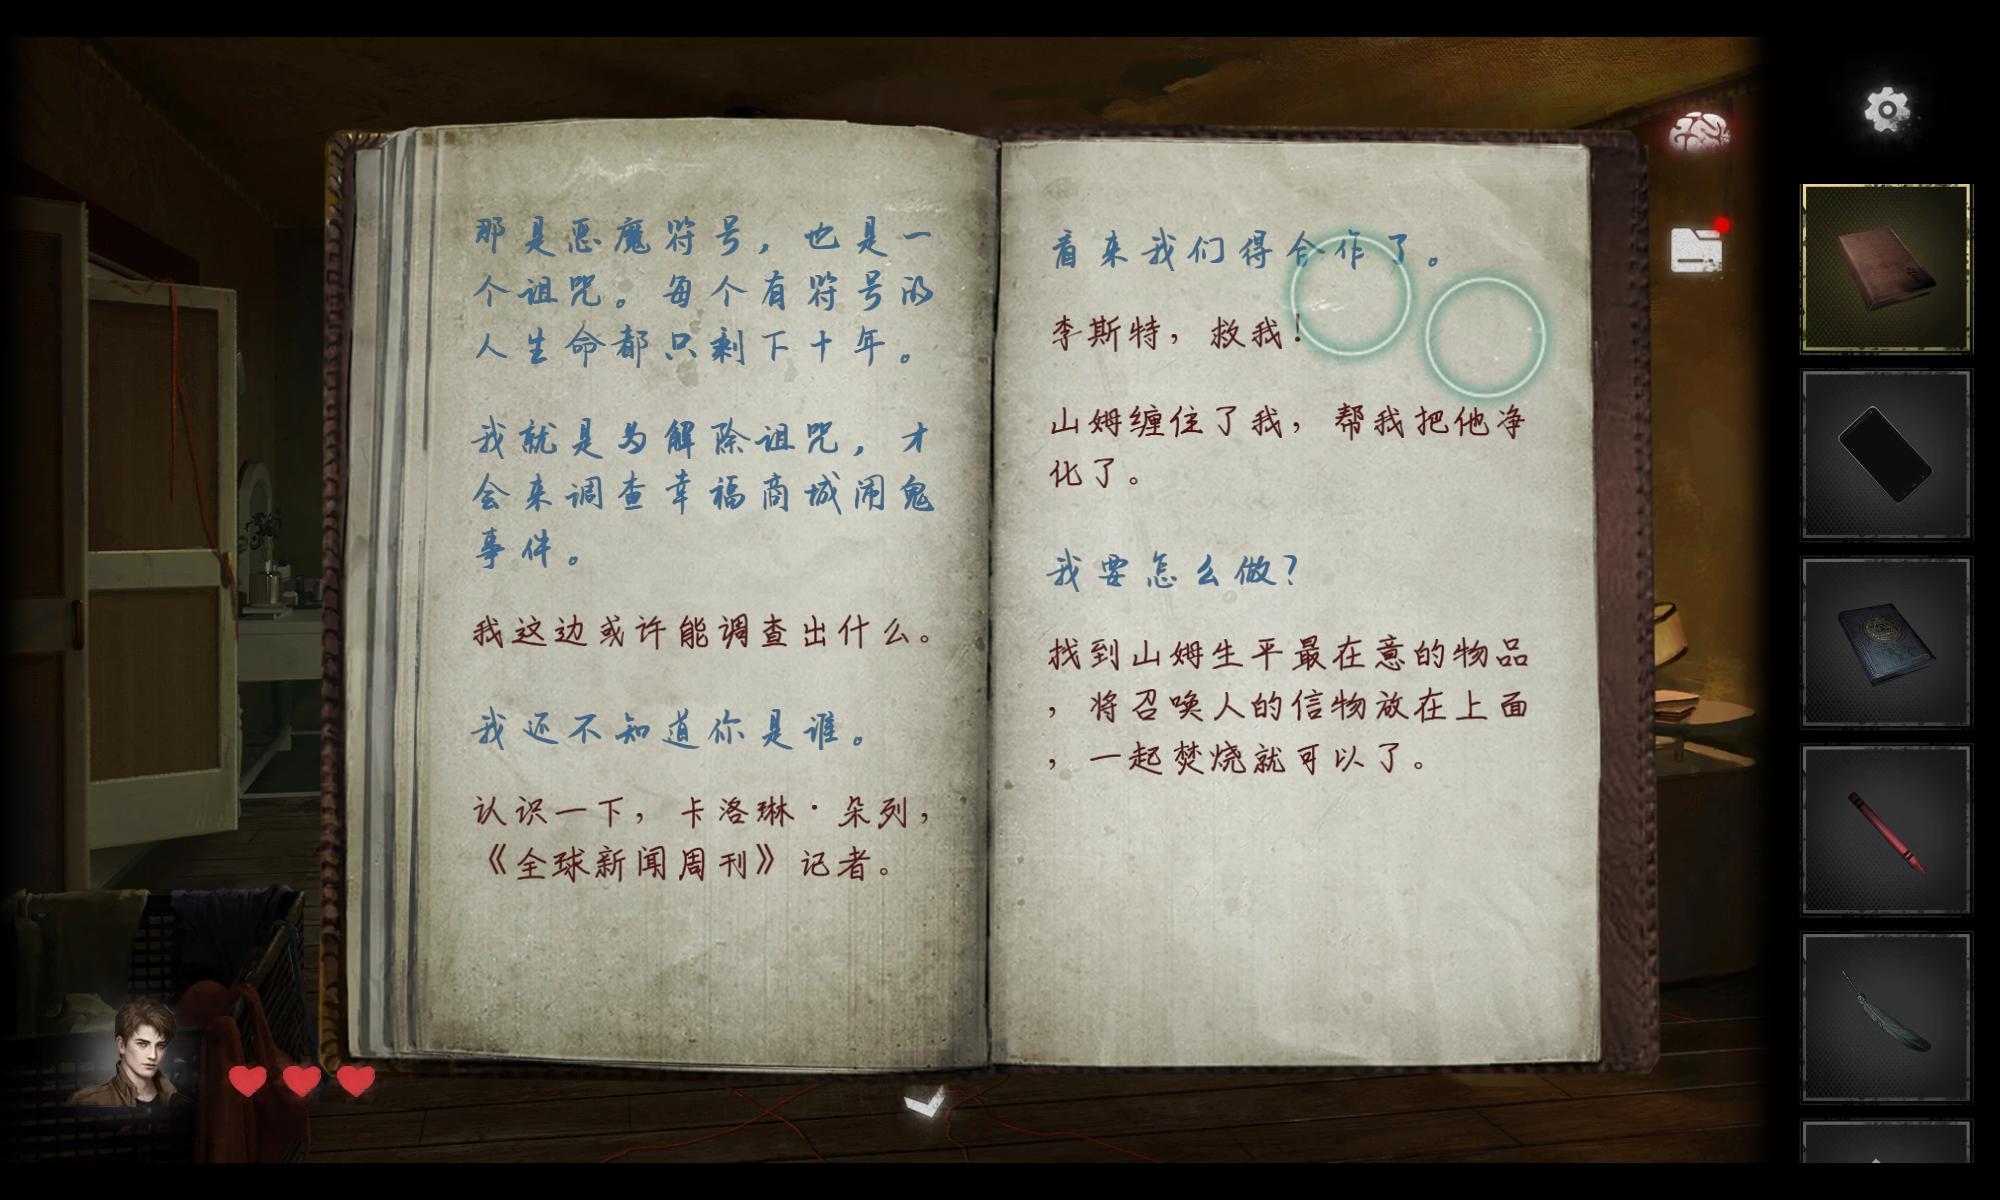 那是恶魔符号，也是一
个诅咒。每个有符号的
人生命都只剩下十年。
我就是为解除诅咒，才
会来调查幸福商城闹鬼
事件。
我这边或许能调查出什么。
我还不知道你是谁。
认识一下，卡洛琳·朵列，
《全球新闻周刊》记者。
看来我们得合作了。
李斯特，救我！
山姆缠住了我，帮我把他净
化了。
我要怎么做？
找到山姆生平最在意的物品
，将召唤人的信物放在上面
，一起焚烧就可以了。